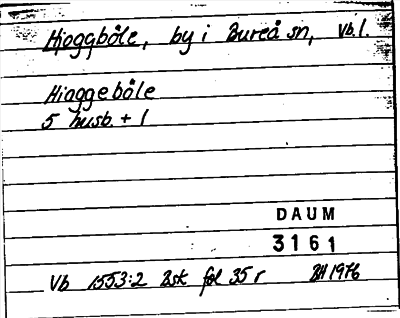 Hjoggböle, by i Bureå sn, Vb.l.
Hioggeböle
5 husb. + 1
DAUM
3161
Vb 1553:2 Bsk fol 35 r BH 1976